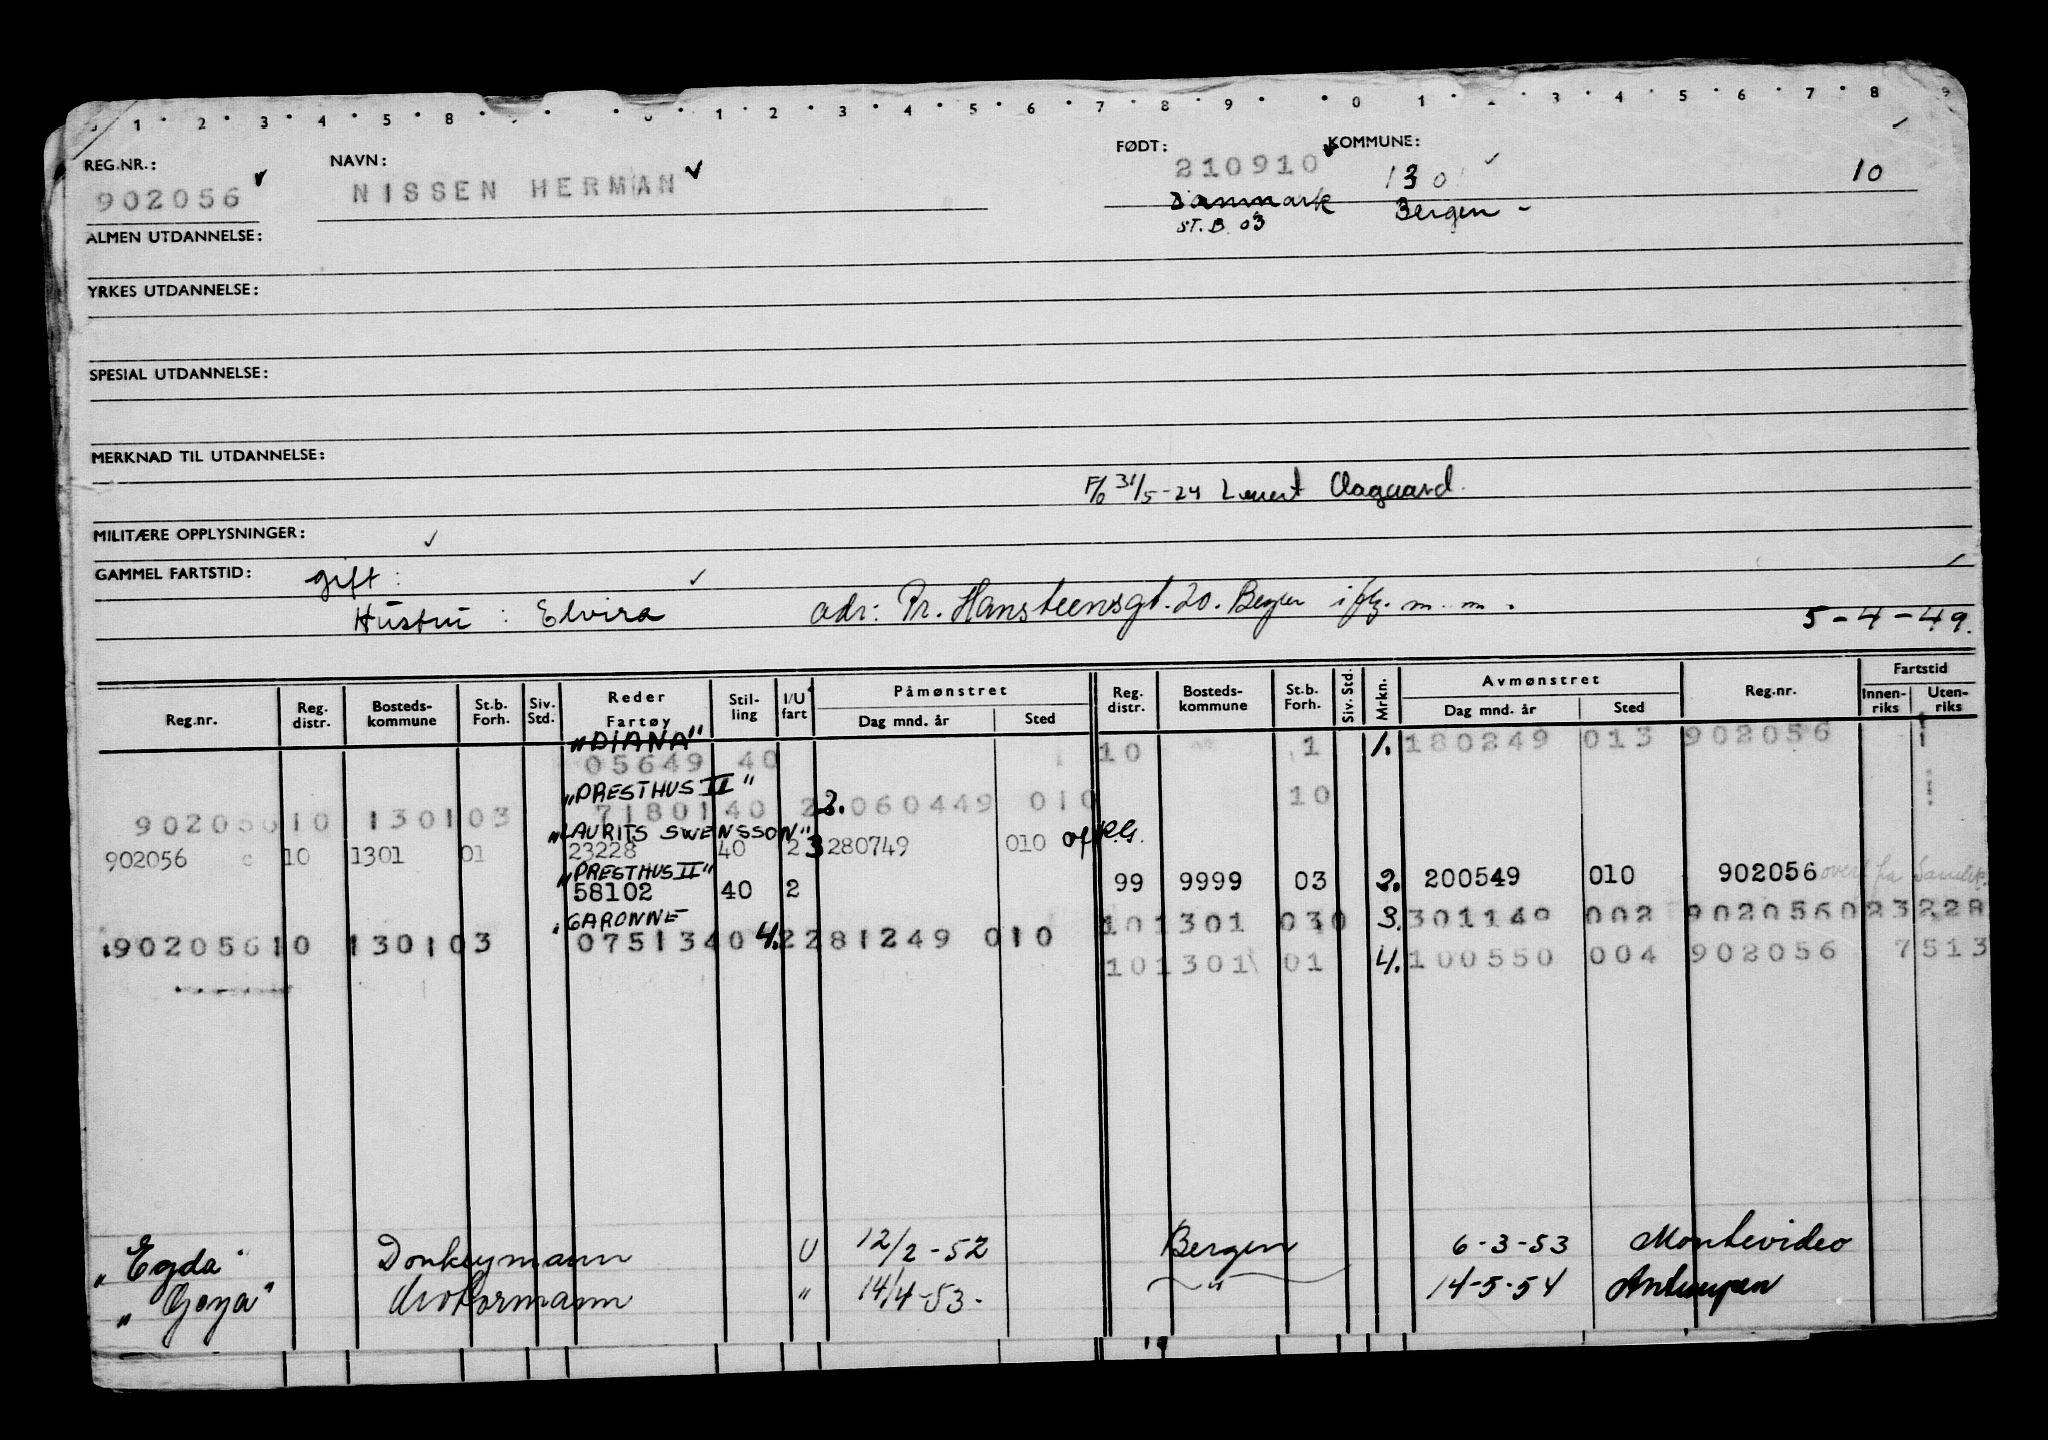 1 · 2 · 3 · 4 · 5 · 8 · 1 2 3 4 5 6 7 8 9 0 1 2 3 4 5 6 7 8 9
REG.NR.: NAVN: FØDT: KOMMUNE:
902056 NISSEN HERMAN 210910 1301 10
Danmark Bergen -
ST. B. 03
ALMEN UTDANNELSE:
YRKES UTDANNELSE:
SPESIAL UTDANNELSE:
MERKNAD TIL UTDANNELSE:
F/b 31/5-24 Aagaard.
MILITÆRE OPPLYSNINGER:
GAMMEL FARTSTID: gift:
Hustru : Elvira adr: Pr. Hansteensgt. 20. Bergen iflg. m. m. 5-4-49.
Reg.nr. Reg. distr. Bosteds-kommune St.b. Forh. Siv. Std. Reder Fartøy Stil-ling I/U fart Påmønstret Dag mnd. år Sted Reg. distr. Bosteds-kommune St.b. Forh. Siv. Std. Mrkn. Avmønstret Dag mnd. år Sted Reg.nr. Fartstid Innen-riks Uten-riks
"DIANA"
05649 40 10 1 1. 180249 013 902056
"PRESTHUS II"
902056 10 1301 03 71801 40 2 2. 060449 010 10
"LAURITS SWENSSON"
902056 c 10 1301 01 23228 40 2 3 280749 010
"PRESTHUS II"
58102 40 2 99 9999 03 2. 200549 010 902056
"GARONNE 10 1301 030 3. 301149 002 902056 0 23228
902056 10 1301 03 07513 40 4. 2 281249 010
10 1301 01 4. 100550 004 902056 7513
"Egda" Donkeymann U 12/2-52 Bergen 6-3-53 Montevideo
"Goya" Motormann " 14/4-53- " 14-5-54 Antwerpen